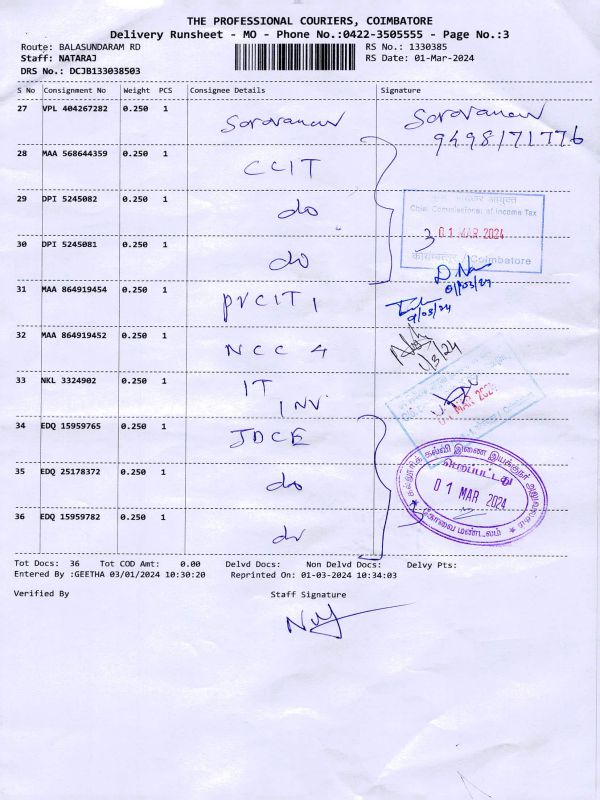 THE PROFESSIONAL COURIERS, COIMBATORE
Delivery Runsheet - MO - Phone No.:0422-3505555 - Page No.:3
Route: BALASUNDARAM RD
Staff: NATARAJ
DRS No.: DCJB133038503
RS No.: 1330385
RS Date: 01-Mar-2024
S No Consignment No Weight PCS Consignee Details Signature
27 VPL 404267282 0.250 1 Saravanan Saravanan
9498171776
28 MAA 568644359 0.250 1 CCIT
29 DPI 5245082 0.250 1 do
30 DPI 5245081 0.250 1 do
Chief Commissioner of Income Tax
3 01 MAR 2024
कोयम्बत्तूर / Coimbatore
31 MAA 864919454 0.250 1 PrCIT 1
01/03/24
32 MAA 864919452 0.250 1 NCC 4
1/3/24
33 NKL 3324902 0.250 1 IT
INV
01 MAR 2024
34 EDQ 15959765 0.250 1 JDCE
35 EDQ 25178372 0.250 1 do
36 EDQ 15959782 0.250 1 do
கல்லூரிக் கல்வி இணை இயக்குநர் அலுவலகம்
பெறப்பட்டது
01 MAR 2024
கோவை மண்டலம்
3
Tot Docs: 36 Tot COD Amt: 0.00 Delvd Docs: Non Delvd Docs: Delvy Pts:
Entered By :GEETHA 03/01/2024 10:30:20 Reprinted On: 01-03-2024 10:34:03
Verified By Staff Signature